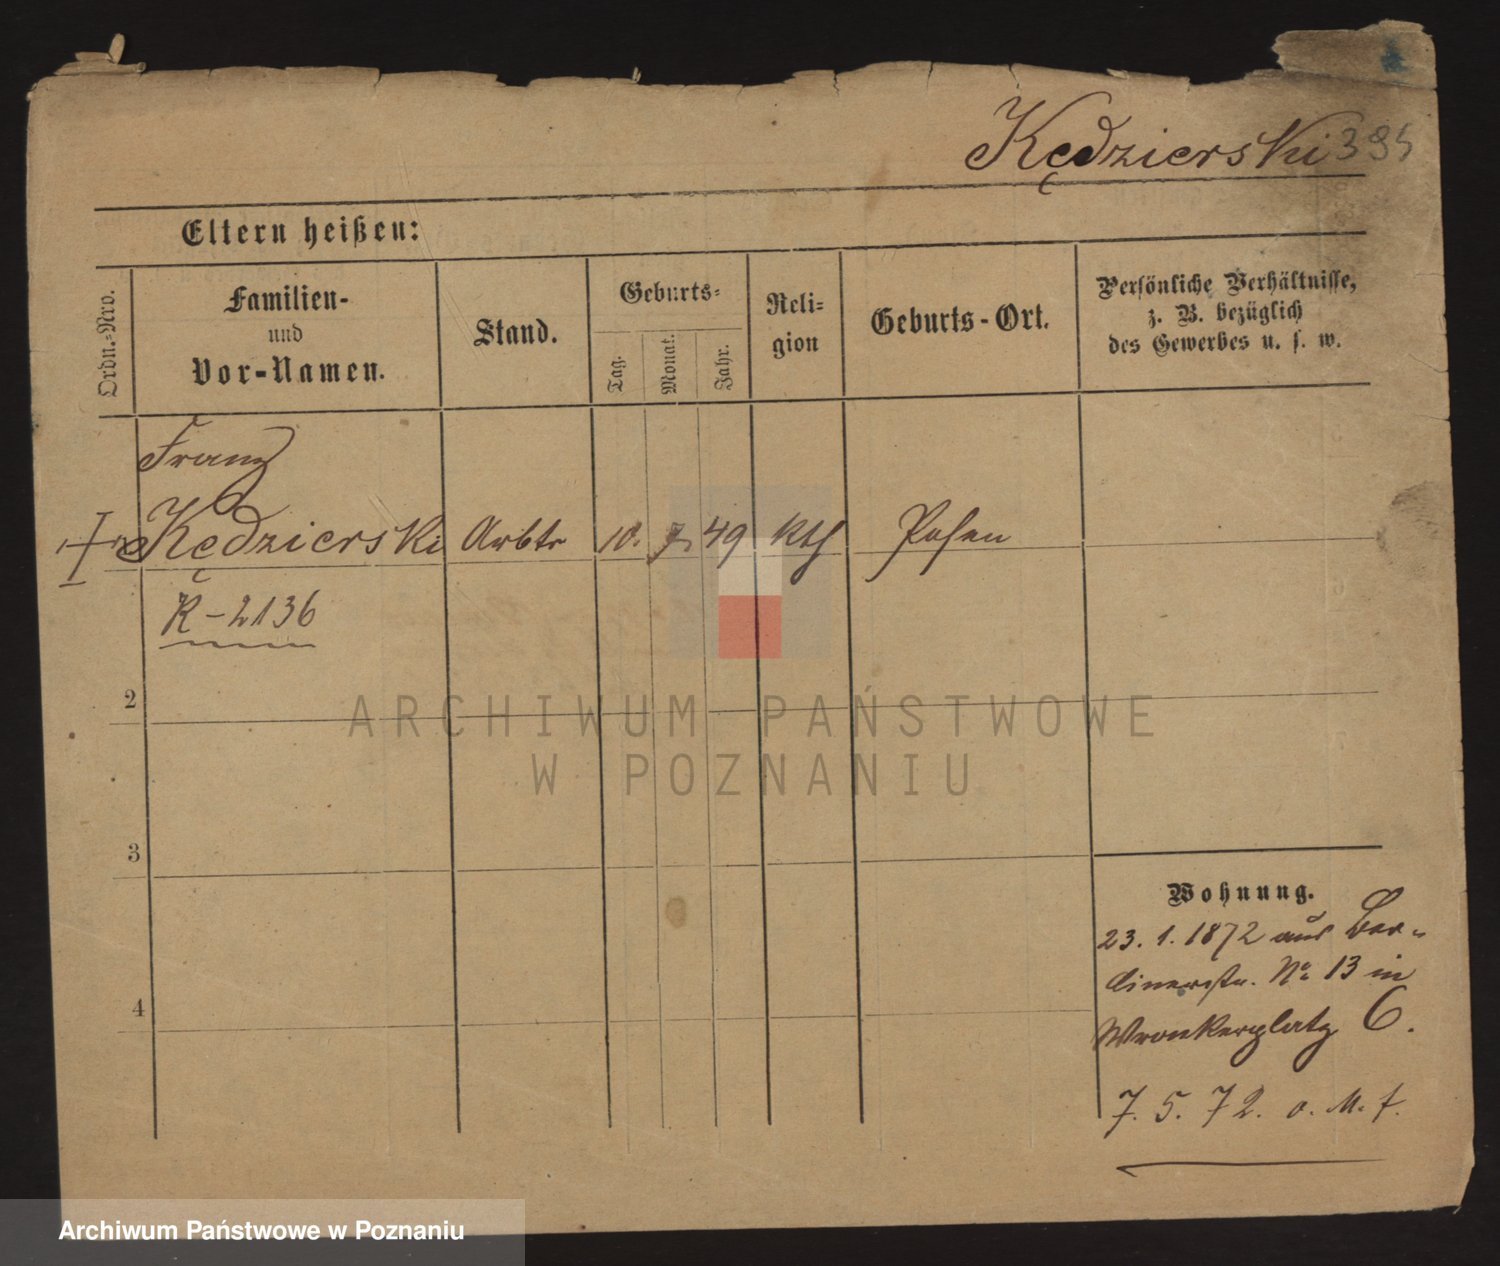 Kędzierski 395
Eltern heißen:
Ordn.-Nro.
Familien-
und
Vor-Namen.
Stand.
Geburts-
Tag.
Monat.
Jahr.
Reli-
gion
Geburts-Ort.
Persönliche Verhältnisse,
z. B. bezüglich
des Gewerbes u. s. w.
Franz
Kędzierski Arbtr 10. 7. 49 kth Posen
K-2136
2
ARCHIWUM PAŃSTWOWE
W POZNANIU
3
Wohnung.
23. 1. 1872 aus Ber-
linerstr. No 13 in
4
Wronkerplatz 6.
7. 5. 72. o. M. f.
Archiwum Państwowe w Poznaniu